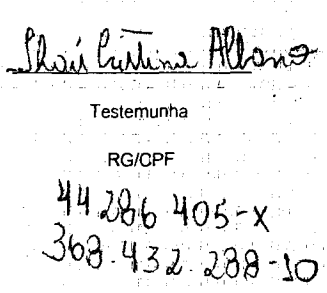 Thaís Cristina Albano
Testemunha
RG/CPF
44.286.405-X
368.432.288-10